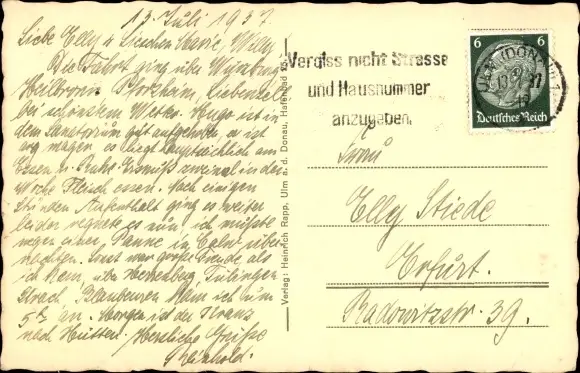 13. Juli 1937.
Liebe Elly u Lieschen Marie, Willy
Die Fahrt ging über Würzburg
Heilbronn Pforzheim, Liebenzell
bei schönstem Wetter. Hugo ist in
dem Sanatorium gut aufgehoben er ist
arg mager es liegt hauptsächlich am
Essen u. Ruhe. Er muß zweimal in der
Woche Fleisch essen. Nach einigen
Stunden Aufenthalt ging es weiter
leider regnete es nun, ich mußte
wegen einer Panne in Calw über
nachten. Sonst war große Freude als
ich kam, über Herrenberg, Tübingen
Urach, Blaubeuren kam ich um
5 an. Morgen ist der
nach Hütten. Herzliche Grüße
Reinhold.
Verlag: Heinrich Rapp, Ulm a. d. Donau, Hafenbad
Vergiss nicht Strasse
und Hausnummer
anzugeben.
6 6
Deutsches Reich
ULM (DONAU)
Frau
Elly Stiede
Erfurt.
Radowitzstr. 39.